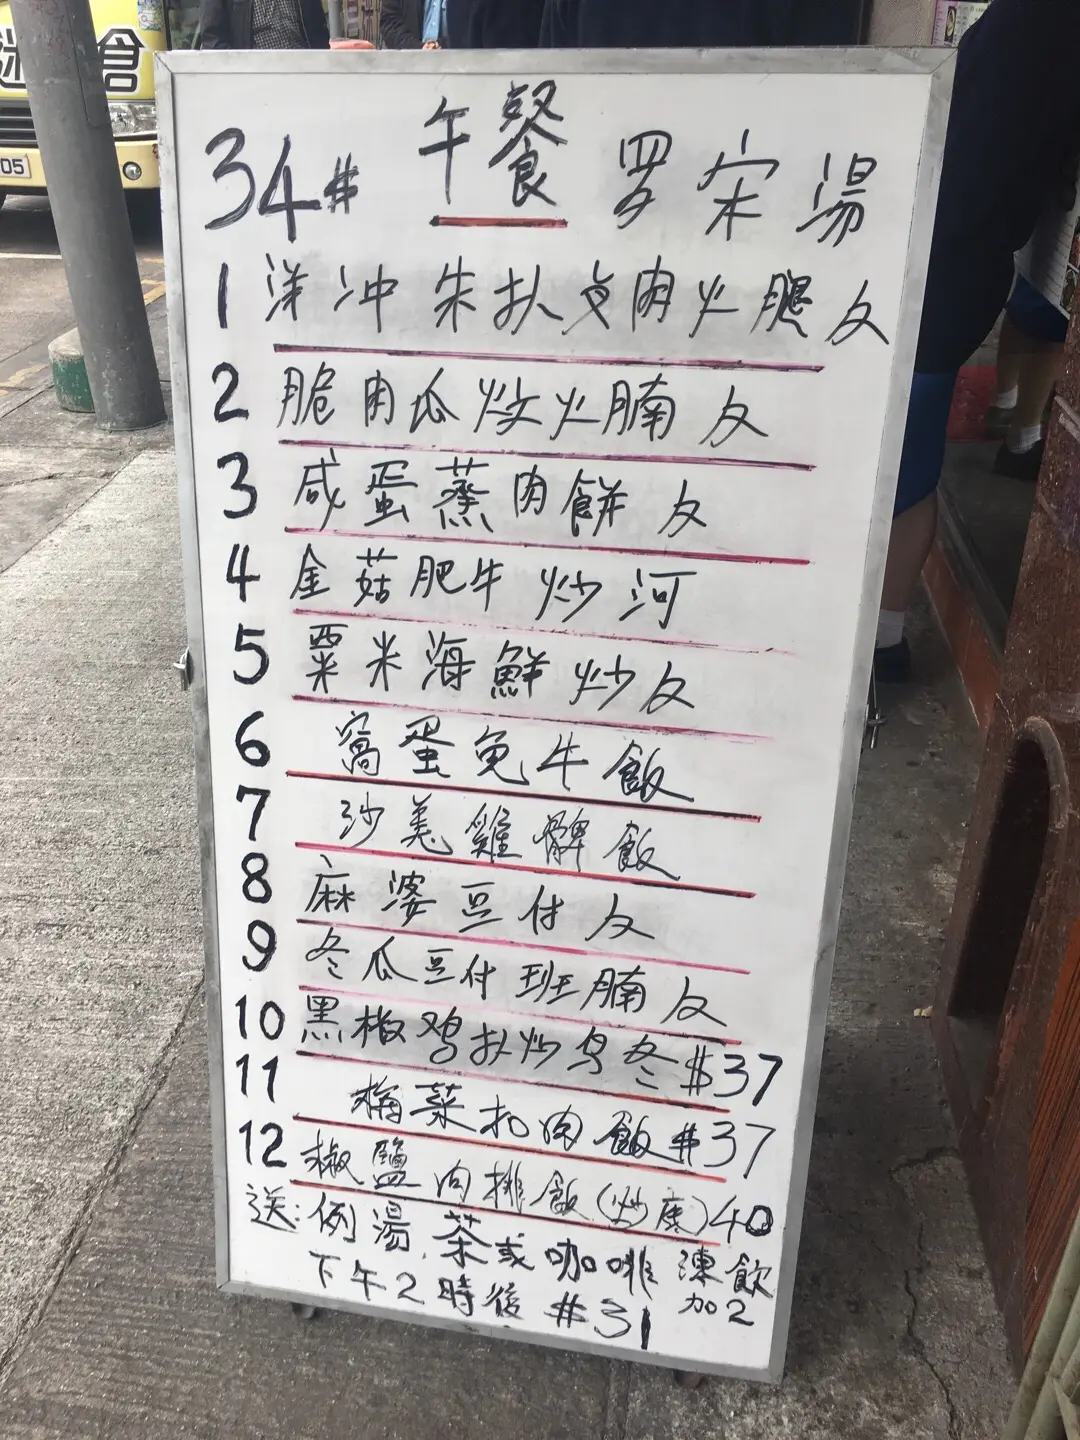 午餐
34# 罗宋湯
1 洋冲朱扒皮肉火腿反
2 脆肉瓜炆火腩反
3 咸蛋蒸肉餅反
4 金菇肥牛炒河
5 粟米海鮮炒反
6 窩蛋免牛飯
7 沙羗雞髀飯
8 麻婆豆付反
9 冬瓜豆付班腩反
10 黑椒鸡扒炒乌冬$37
11 梅菜扣肉飯$37
12 椒鹽肉排飯(炒底)40
送:例湯.茶或咖啡 凍飲加2
下午2時後 $31
05